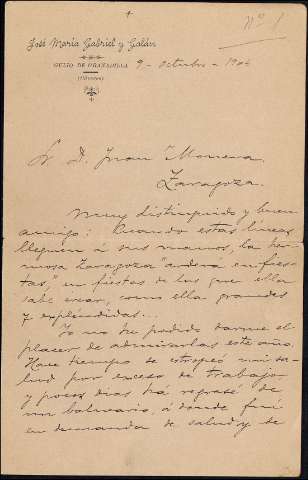 Nº 1
José María Gabriel y Galán
GUIJO DE GRANADILLA
(Cáceres)
9 - octubre - 1904
Sr. D. Juan Moneva.
Zaragoza.
Muy distinguido y buen
amigo: Cuando estas líneas
lleguen á sus manos, la her-
mosa Zaragoza "arderá en fies-
tas", en fiestas de las que ella
sabe crear, como ella grandes
y espléndidas...
Yo no he podido darme el
placer de admirarlas este año.
Hace tiempo se estropeó mi sa-
lud por exceso de trabajo
y pocos días há regresé de
un balneario, á donde fuí
en demanda de salud y de